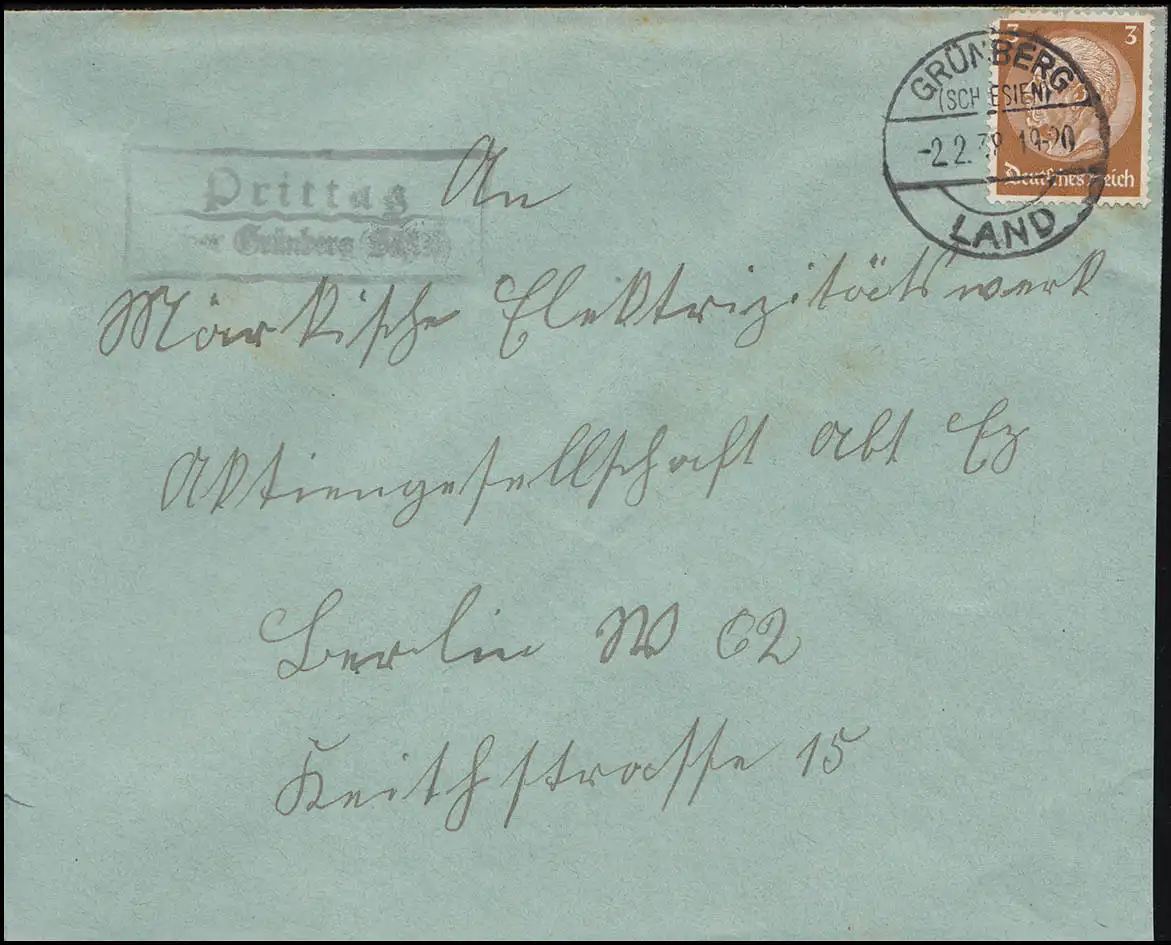 3 3
Deutsches Reich
GRÜNBERG
(SCHLESIEN)
-2.2.38 19-20
LAND
Prittag
über Grünberg (Schles)
An
Märkische Elektrizitätswerk
Aktiengesellschaft Abt Ez
Berlin W 62
Keithstrasse 15